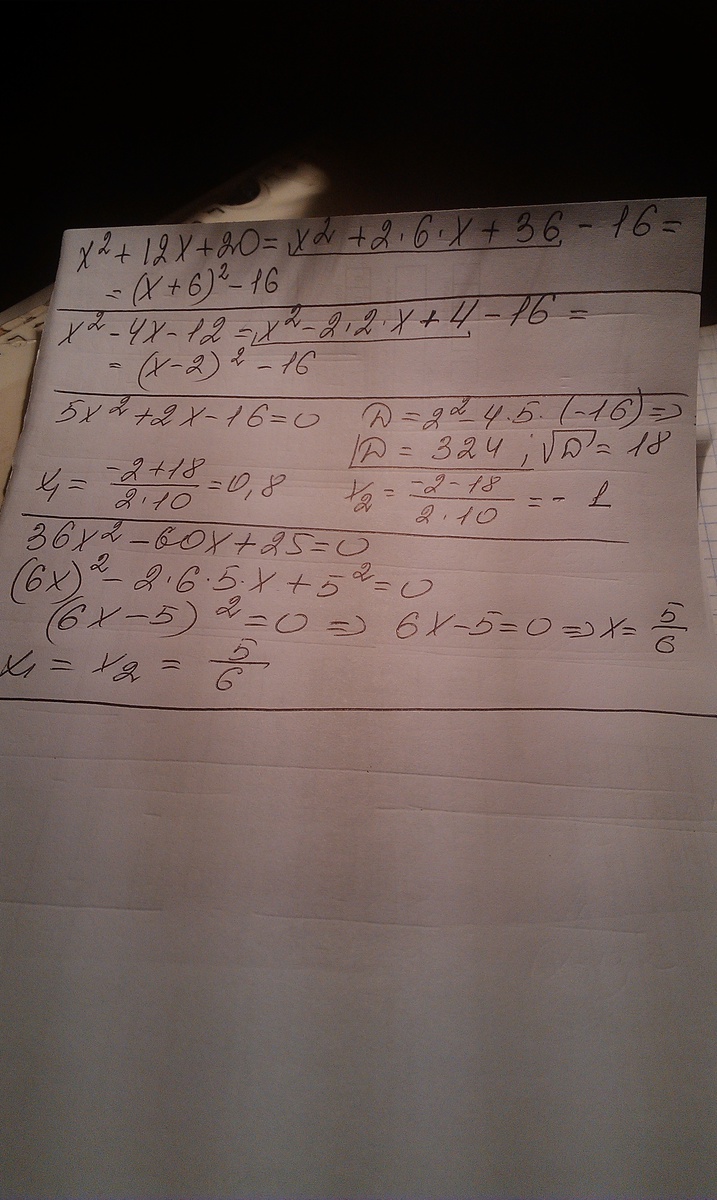 x² + 12x + 20 = x² + 2·6·x + 36 - 16 =
= (x + 6)² - 16
x² - 4x - 12 = x² - 2·2·x + 4 - 16 =
= (x - 2)² - 16
5x² + 2x - 16 = 0 D = 2² - 4·5·(-16) =>
D = 324 ; √D = 18
x₁ = (-2 + 18)/(2·10) = 0,8 x₂ = (-2 - 18)/(2·10) = - 1
36x² - 60x + 25 = 0
(6x)² - 2·6·5·x + 5² = 0
(6x - 5)² = 0 => 6x - 5 = 0 => x = 5/6
x₁ = x₂ = 5/6